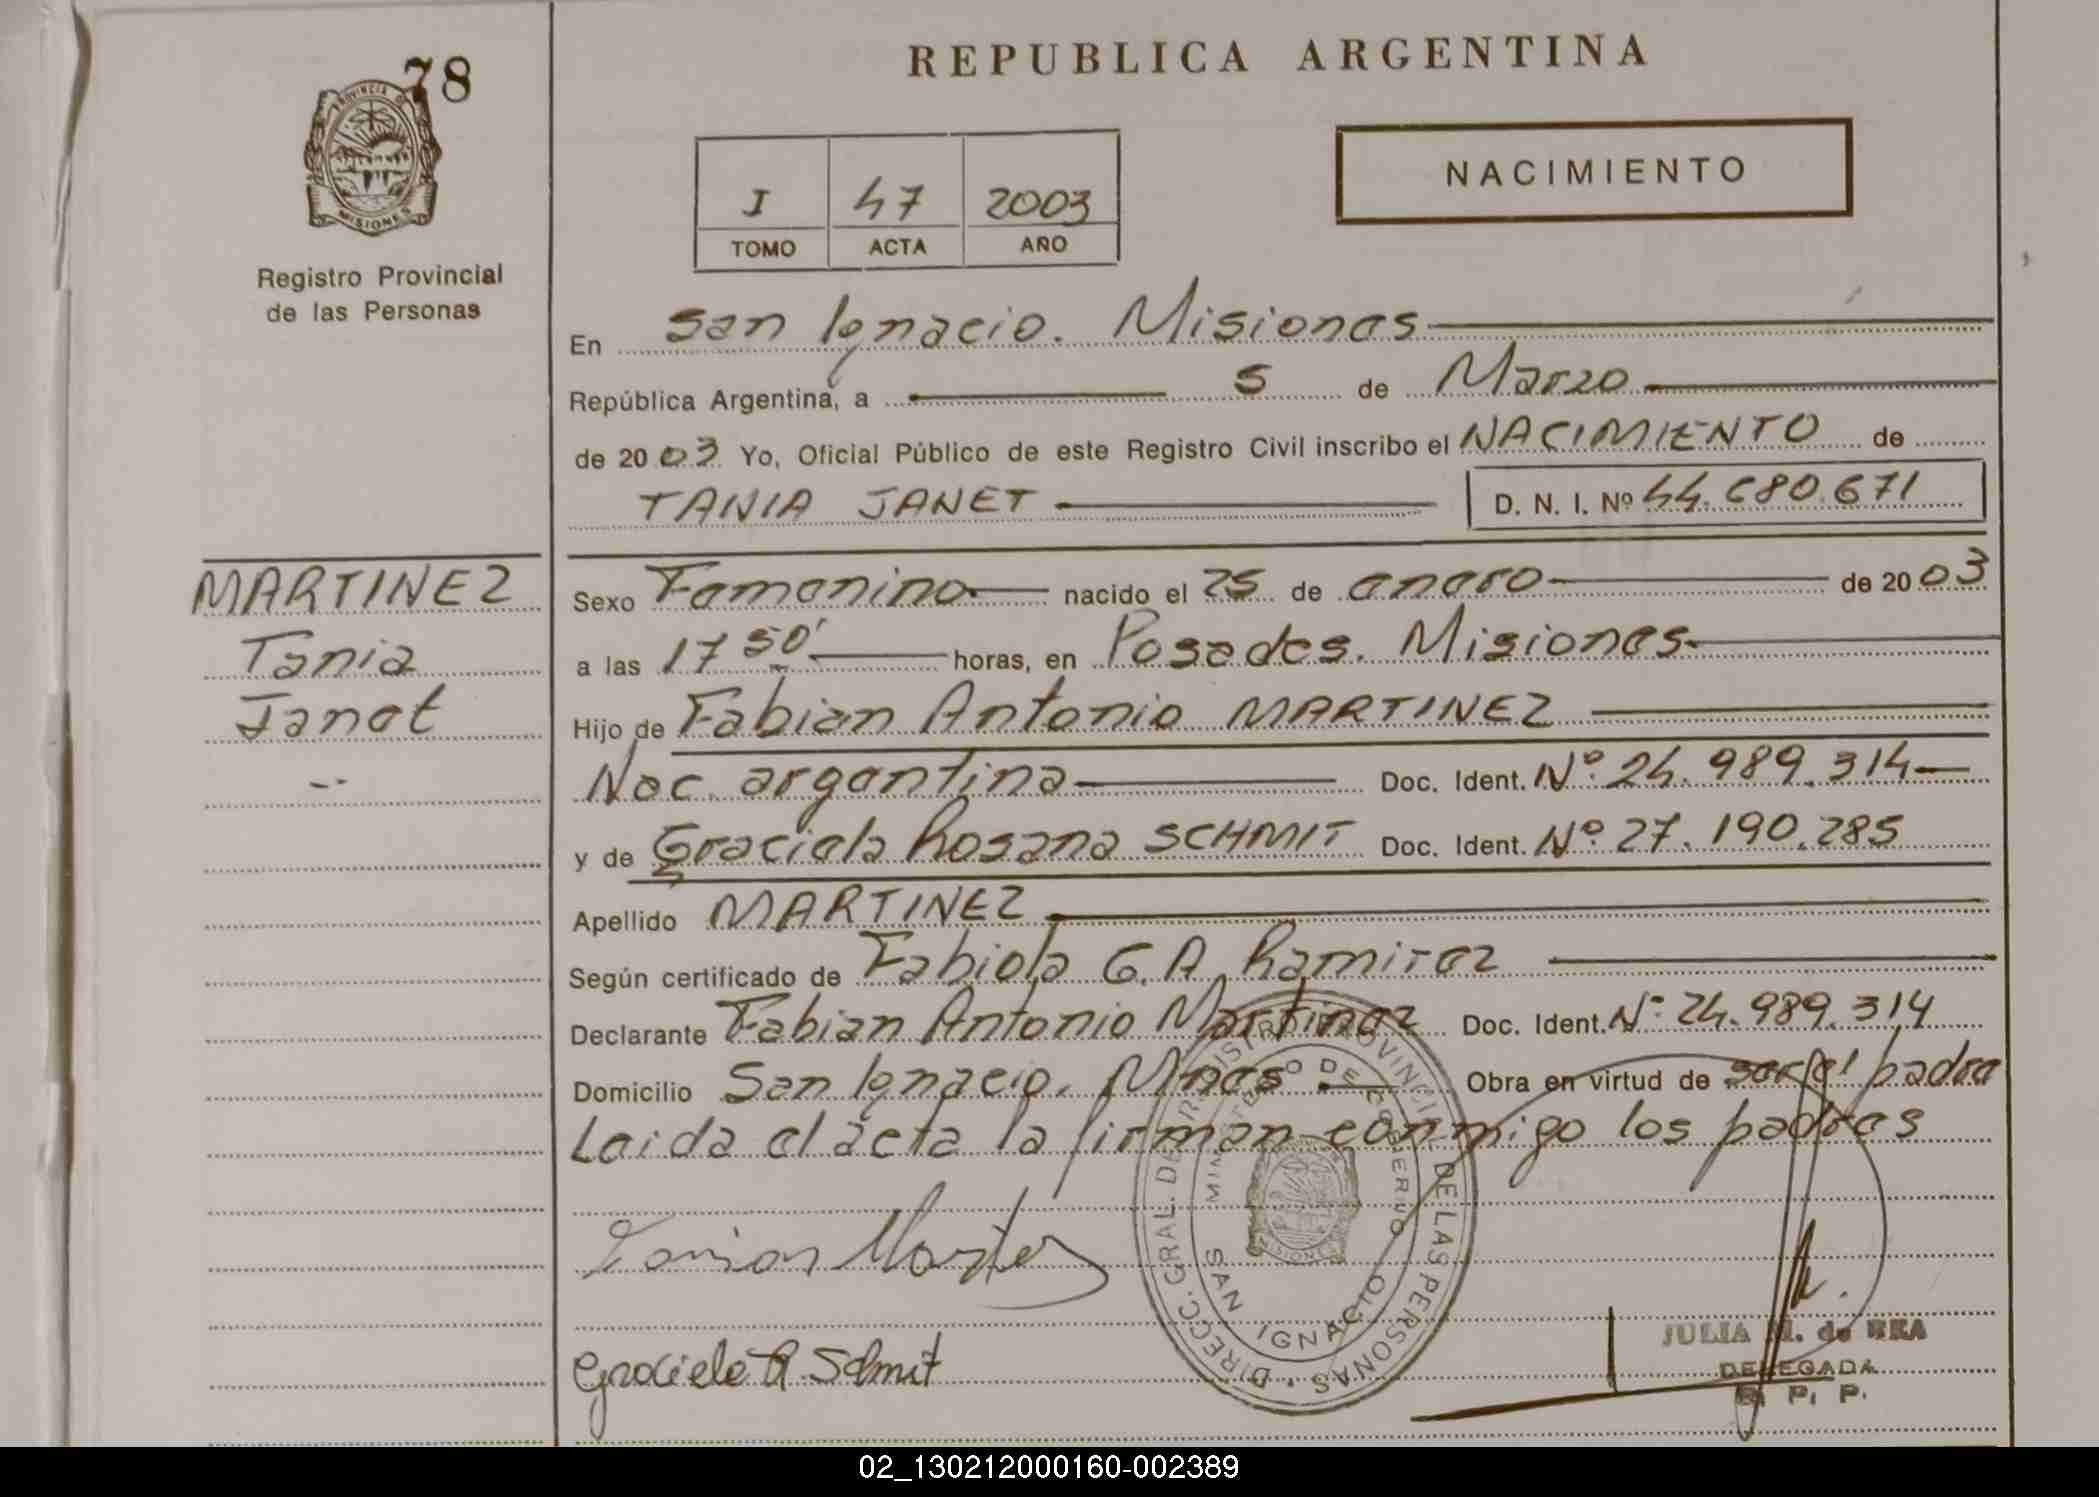 78
PROVINCIA DE
MISIONES
Registro Provincial
de las Personas
REPUBLICA ARGENTINA
I 47 2003
TOMO ACTA AÑO
NACIMIENTO
En San Ignacio. Misiones
República Argentina, a 5 de Marzo
de 2003 Yo, Oficial Público de este Registro Civil inscribo el NACIMIENTO de
TANIA JANET D. N. I. Nº 44.680.671
MARTINEZ
Tania
Janet
Sexo Femenino nacido el 25 de enero de 2003
a las 17 50' horas, en Posadas. Misiones
Hijo de Fabian Antonio MARTINEZ
Nac. argentina Doc. Ident. Nº 24.989.314
y de Graciela Rosana SCHMIT Doc. Ident. Nº 27.190.285
Apellido MARTINEZ
Según certificado de Fabiola G.A. Ramirez
Declarante Fabian Antonio Martinez Doc. Ident. Nº 24.989.314
Domicilio San Ignacio. Mnes Obra en virtud de ser el padre
Leida el acta la firman conmigo los padres
DIRECC. GRAL. DE REGISTRO PROVINCIAL DE LAS PERSONAS
MINISTERIO DE GOBIERNO
SAN IGNACIO
MISIONES
Graciela R Schmit
JULIA M. de REA
DELEGADA
R. P. P.
02_130212000160-002389